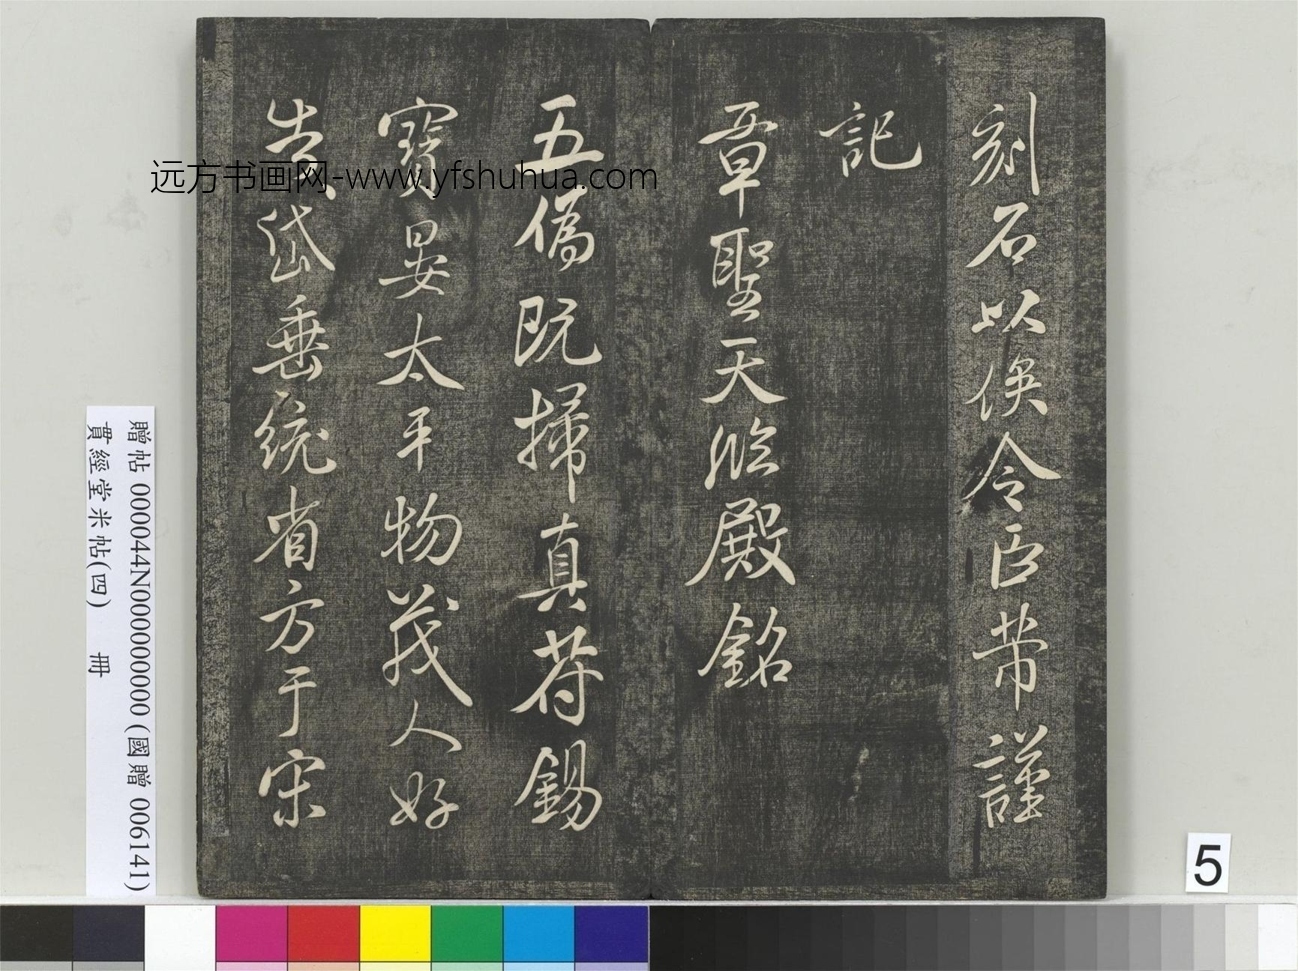 刻石以俟令臣芾謹
記
章聖天臨殿銘
五僞既掃真苻錫
寶晏太平物茂人好
告成岱垂統省方于宋
远方书画网-www.yfshuhua.com
贈帖 000044N000000000 (國贈 006141)
貫經堂米帖(四) 冊
5